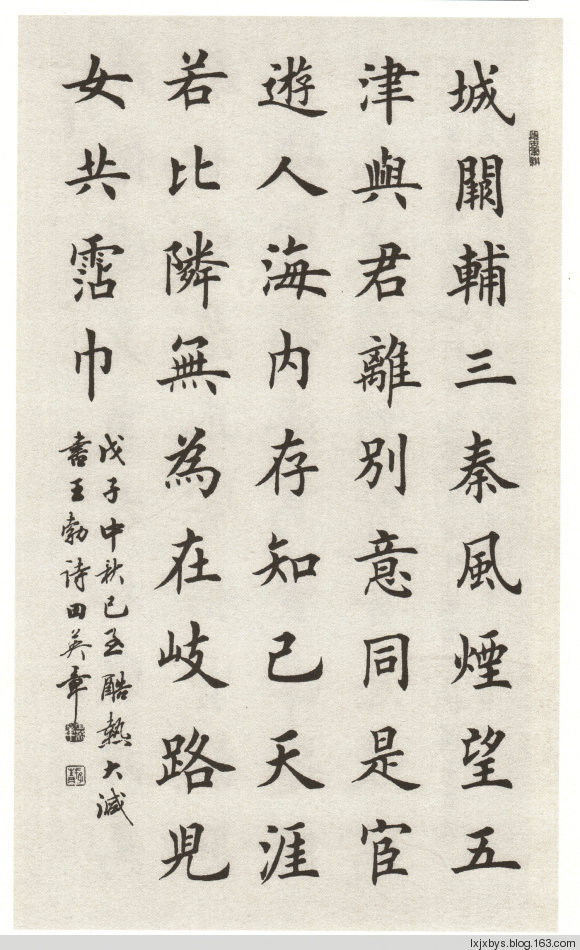 城闕輔三秦風煙望五
津與君離別意同是宦
遊人海内存知己天涯
若比隣無為在岐路兒
女共霑巾
戊子中秋已至酷熱大減
書王勃詩田英章
lxjxbys.blog.163.com